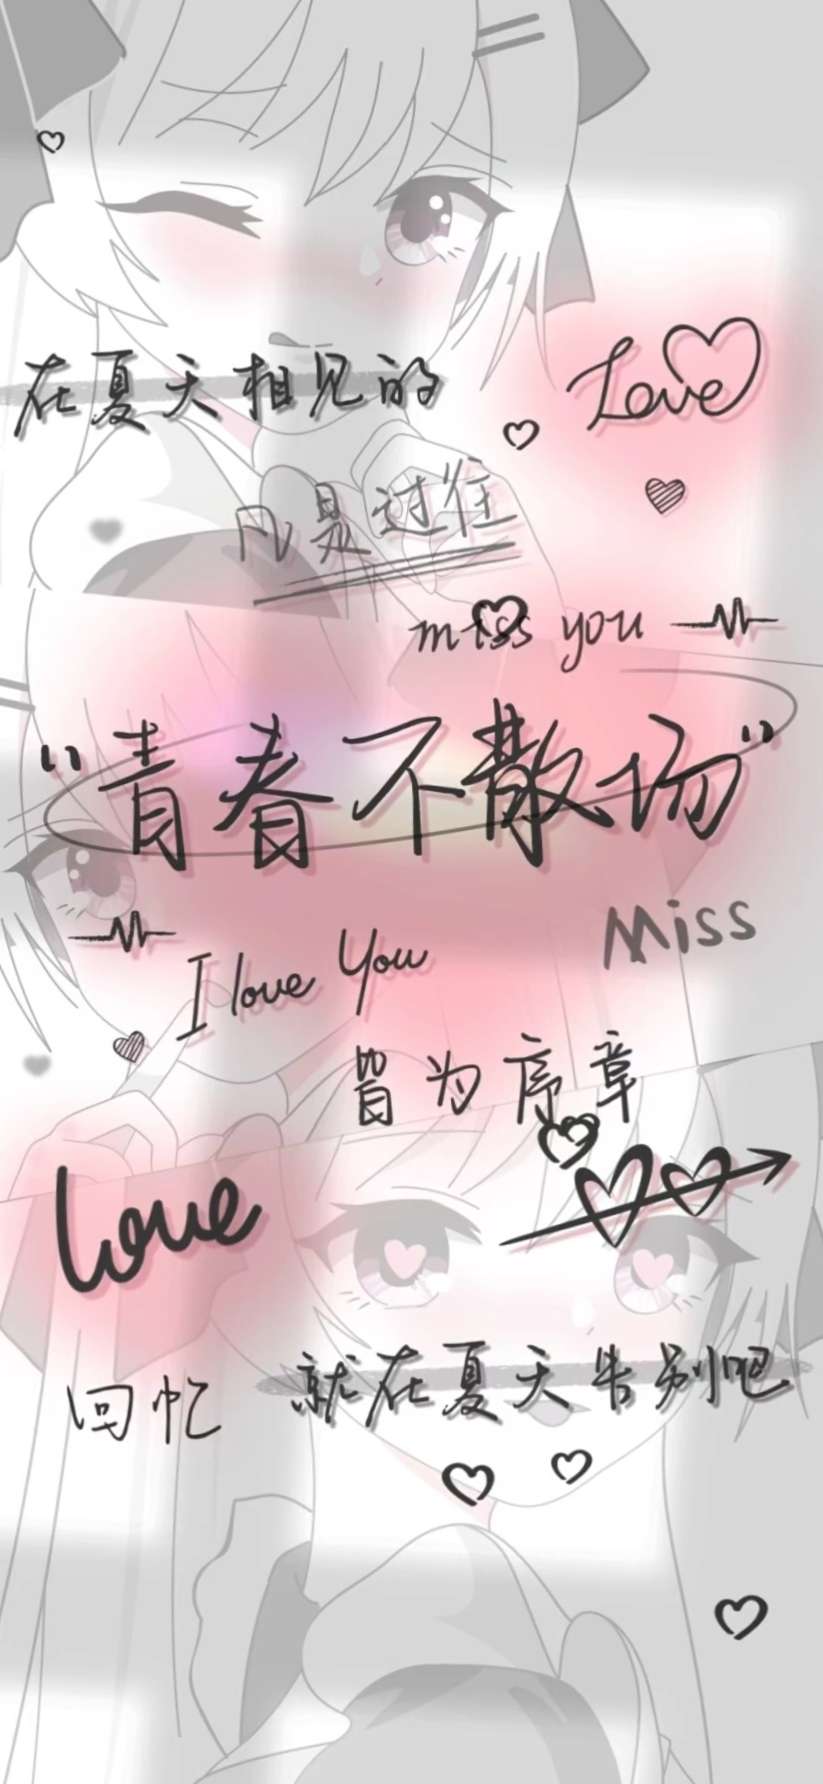 在夏天相见的
Love
凡是过往
miss you
“青春不散场”
Miss
I love You
皆为序章
Love
就在夏天告别吧
回忆